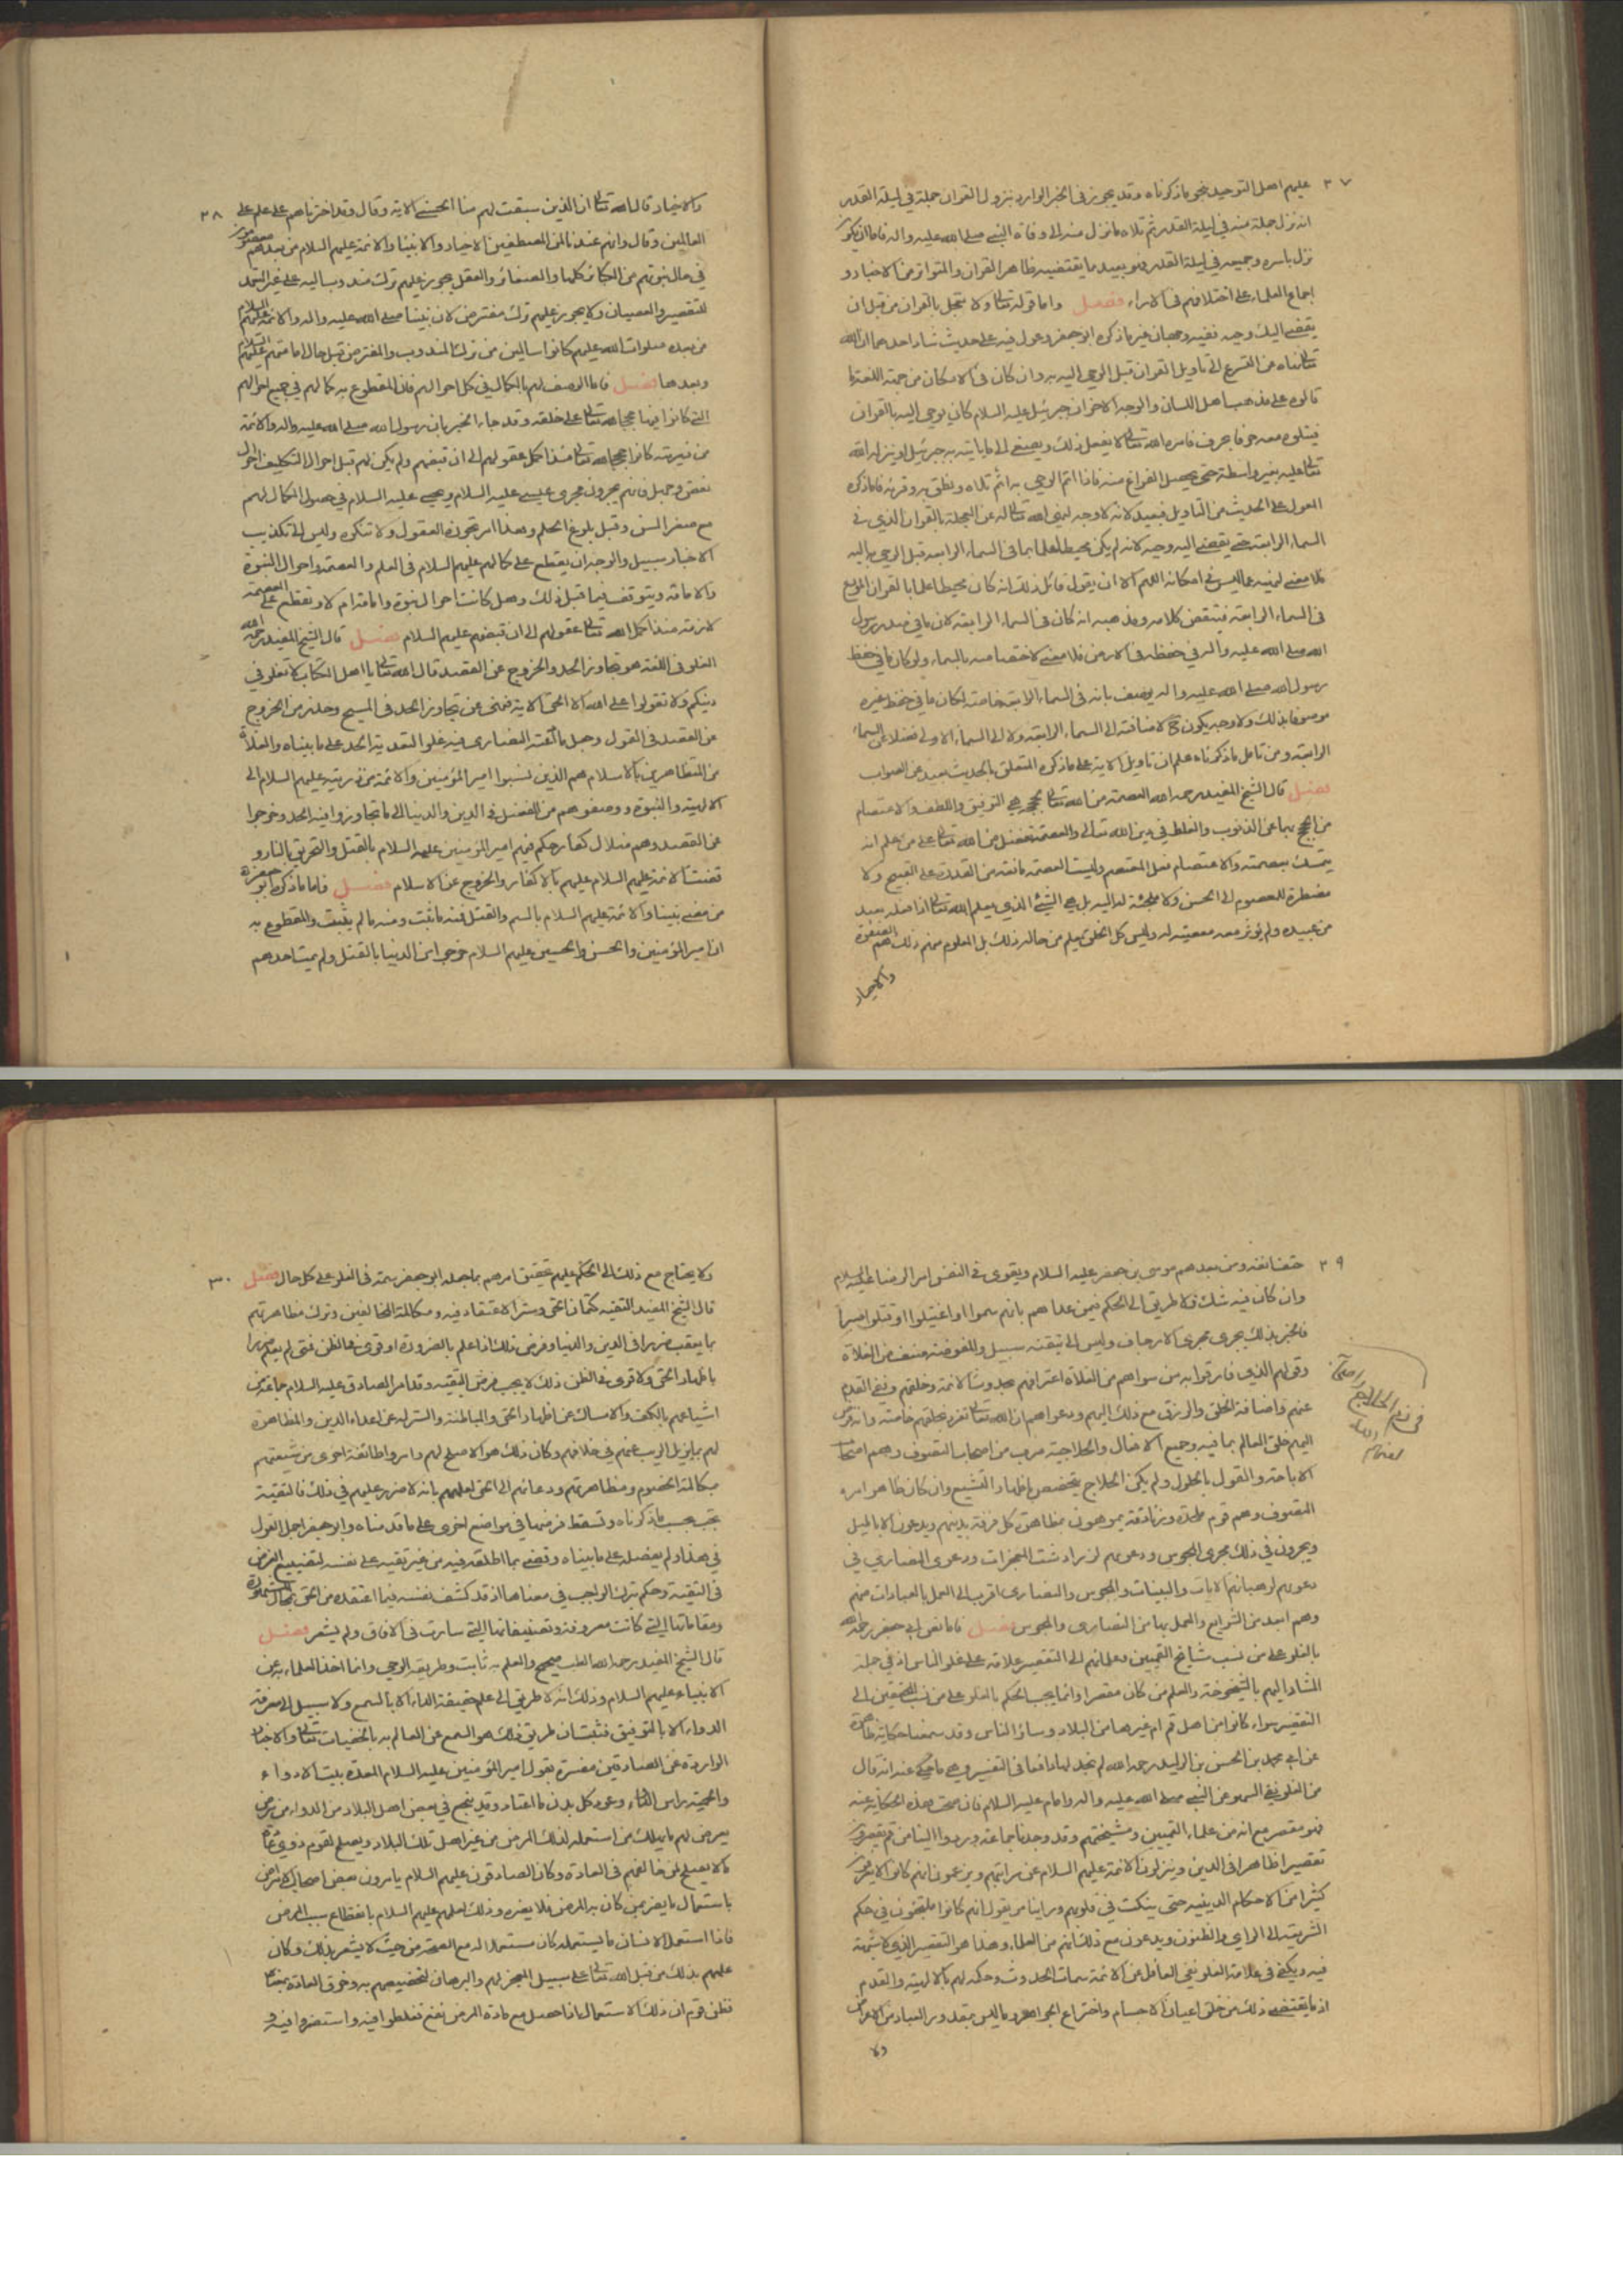 ٢٧
عليهم اهل التوحيد بنحو ما ذكرناه وقد يجوز في الخبر الوارد بنزول القران جملة في ليلة القدر
انه نزل جملة منه في ليلة القدر ثم تلاه ما نزل منه الى وفاة النبي صلى الله عليه واله فاما ان يكون
نزل باسره وجميعه في ليلة القدر فهو بعيد مما يقتضيه ظاهر القران والمتواتر من الاخبار و
اجماع العلماء على اختلافهم في الاراء فصل واما قوله تعالى ولا تعجل بالقران من قبل ان
يقضى اليك وحيه ففيه وجهان غير ما ذكره ابو جعفر وعول فيه على حديث شاذ احدهما ان الله
تعالى نهاه عن التسرع الى تاويل القران قبل الوحي اليه به وان كان في الامكان من جهة اللغة ما
قالوه على مذهب اهل اللسان والوجه الاخر ان جبرئيل عليه السلام كان يوحي اليه بالقران
فيتلوه معه حرفا بحرف فامره الله تعالى ان لا يفعل ذلك ويصغي الى ما ياتيه به جبرئيل او ينزله الله
تعالى عليه بغير واسطة حتى يحصل الفراغ منه فاذا اتم الوحي به اثم تلاه ونطق به وقرئه فاما ذكره
المعول على الحديث من التاويل فبعيد لانه لا وجه لنهي الله تعالى له عن العجلة بالقران الذي في
السماء الرابعة حتى يقضى اليه وحيه لانه لم يكن محيطا علما بما في السماء الرابعة قبل الوحي به اليه
فلا معنى لنهيه عما ليس في امكانه اللهم الا ان يقول قائل ذلك انه كان محيطا علما بالقران المودع
في السماء الرابعة فينتقض كلامه ومذهبه انه كان في السماء الرابعة لان ما في صدر رسول
الله صلى الله عليه واله في حفظه في الارض فلا معنى لاختصاصه بالسماء ولو كان ما في حفظ
رسول الله صلى الله عليه واله يوصف بانه في السماء الرابعة خاصة لكان ما في حفظ غيره
موصوفا بذلك ولا وجه يكون ح لاضافته الى السماء الرابعة ولا الى السماء الاولى فضلا عن السماء
الرابعة ومن تامل ما ذكرناه علم ان تاويل الاية على ما ذكره المتعلق بالحديث بعيد عن الصواب
فصل قال الشيخ المفيد رحمه الله العصمة من الله تعالى لحججه هي التوفيق واللطف والاعتصام
من الحجج بها عن الذنوب والغلط في دين الله تعالى والعصمة تفضل من الله تعالى على من علم انه
يتمسك بعصمته والاعتصام فعل المعتصم وليست العصمة مانعة من القدرة على القبيح ولا
مضطرة للمعصوم الى الحسن ولا ملجئة له اليه بل هي الشيء الذي يعلم الله تعالى انه اذا فعله بعبد
من عبيده لم يؤثر معه معصيته له وليس كل الخلق يعلم من حاله ذلك بل المعلوم منهم ذلك هم الصفوة
والاخيار
٢٨
والاخيار قال الله تعالى ان الذين سبقت لهم منا الحسنى الاية وقال ولقد اخترناهم على علم على
العالمين وقال وانهم عندنا لمن المصطفين الاخيار والانبياء والائمة عليهم السلام من بعدهم معصومون
في حال نبوتهم من الكبائر كلها والصغائر والعقل يجوز عليهم ترك مندوب اليه على غير التعمد
للتقصير والعصيان ولا يجوز عليهم ترك مفترض الا ان نبينا صلى الله عليه واله والائمة عليهم السلام
من بعده صلوات الله عليهم كانوا سالمين من ترك المندوب والمفترض قبل حال امامتهم عليهم السلام
وبعدها فصل فاما الوصف لهم بالكمال في كل احوالهم فان المقطوع به كمالهم في جميع احوالهم
التي كانوا فيها حججا لله تعالى على خلقه وقد جاء الخبر بان رسول الله صلى الله عليه واله والائمة
من ذريته كانوا حججا لله تعالى منذ اكمل عقولهم الى ان قبضهم ولم يكن لهم قبل احوال التكليف احوال
نقص وجهل فانهم يجرون مجرى عيسى عليه السلام ويحيى عليه السلام في حصول الكمال لهم
مع صغر السن وقبل بلوغ الحلم وهذا امر تجوزه العقول ولا تنكره وليس الى تكذيب
الاخبار سبيل والوجه ان يقطع على كمالهم عليهم السلام في العلم والعصمة في احوال النبوة
والامامة ويتوقف فيما قبل ذلك وهل كانت احوال نبوة وامامة ام لا ونقطع على العصمة
لازمة منذ اكمل الله تعالى عقولهم الى ان قبضهم عليهم السلام فصل قال الشيخ المفيد رحمه الله
الغلو في اللغة هو تجاوز الحد والخروج عن القصد قال الله تعالى يا اهل الكتاب لا تغلوا في
دينكم ولا تقولوا على الله الا الحق الاية فنهى عن تجاوز الحد في المسيح وحذر من الخروج
عن القصد في القول وجعل ما ادعته النصارى فيه غلوا لتعديه الحد على ما بيناه والغلاة
من المتظاهرين بالاسلام هم الذين نسبوا امير المؤمنين والائمة من ذريته عليهم السلام الى
الالهية والنبوة ووصفوهم من الفضل في الدين والدنيا الى ما تجاوزوا فيه الحد وخرجوا
عن القصد وهم ضلال كفار حكم فيهم امير المؤمنين عليه السلام بالقتل والتحريق بالنار و
قضت الائمة عليهم السلام عليهم بالاكفار والخروج عن الاسلام فصل فاما ما ذكره ابو جعفر ره
من مضي نبينا والائمة عليهم السلام بالسم والقتل فمنه ما ثبت ومنه ما لم يثبت والمقطوع به
ان امير المؤمنين والحسن والحسين عليهم السلام خرجوا من الدنيا بالقتل ولم يمت احدهم
٢٩
حتف انفه وممن بعدهم موسى بن جعفر عليه السلام ويقوى في النفس امر الرضا عليه السلام
وان كان فيه شك فلا طريق الى الحكم فيمن عداهم بانهم سموا او اغتيلوا او قتلوا صبرا
فالخبر بذلك يجرى مجرى الارجاف وليس الى تيقنه سبيل والمفوضة صنف من الغلاة
وقولهم الذي فارقوا به من سواهم من الغلاة اعترافهم بحدوث الائمة وخلقهم ونفي القدم
عنهم واضافة الخلق والرزق مع ذلك اليهم ودعواهم ان الله تعالى تفرد بخلقهم خاصة وانه فوض
اليهم خلق العالم بما فيه وجميع الافعال والحلاجية ضرب من اصحاب التصوف وهم اصحاب
الاباحة والقول بالحلول ولم يكن الحلاج يتخصص باظهار التشيع وان كان ظاهر امره
التصوف وهم قوم ملحدة وزنادقة يموهون بمظاهرة كل فرقة بدينهم ويدعون الاباطيل
ويجرون في ذلك مجرى المجوس ودعويهم لزرادشت المعجزات ودعوى النصارى في
دعويهم لرهبانهم الايات والبينات والمجوس والنصارى اقرب الى العمل بالعبادات منهم
وهم ابعد من الشرايع والعمل بها من النصارى والمجوس فصل فاما نص ابي جعفر رحمه الله
بالغلو على من نسب مشايخ القميين وعلمائهم الى التقصير علامة على غلو الناس اذ في جملة
المشار اليهم بالشيخوخة والعلم من كان مقصرا وانما يجب الحكم بالغلو على من نسب المحققين الى
التقصير سواء كانوا من اهل قم ام غيرها من البلاد وسائر الناس وقد سمعنا حكاية ظاهرة
عن ابي جعفر محمد بن الحسن بن الوليد رحمه الله لم نجد لها دافعا في التفسير وهي ما حكي عنه انه قال
من الغلو نفي السهو عن النبي صلى الله عليه واله والامام عليه السلام فان صحت هذه الحكاية عنه
فهو مقصر مع انه من علماء القميين ومشيختهم وقد وجدنا جماعة وردوا الينا من قم يقصرون
تقصيرا ظاهرا في الدين وينزلون الائمة عليهم السلام عن مراتبهم ويزعمون انهم كانوا لا يعرفون
كثيرا من الاحكام الدينية حتى ينكت في قلوبهم وراينا من يقول انهم كانوا ملتجئون في حكم
الشريعة الى الراي والظنون ويدعون مع ذلك انهم من العلماء وهذا هو التقصير الذي لا شبهة
فيه ويكفي في علامة الغلو نفي القائل عن الائمة سمات الحدوث وحكمه لهم بالالهية والقدم
اذ ما يقتضى ذلك من خلق اعيان الاجسام واختراع الجواهر وما ليس بمقدور العباد من الاعراض
ولا
٣٠
ولا يحتاج مع ذلك الى الحكم عليهم بتحقيق امرهم بما جعله ابو جعفر سمة في الغلو على كل حال فصل
قال الشيخ المفيد التقية كتمان الحق وستر الاعتقاد فيه ومكاتمة المخالفين وترك مظاهرتهم
بما يعقب ضررا في الدين والدنيا وفرض ذلك اذا علم بالضرورة او قوى في الظن فمتى لم يعلم ضررا
باظهار الحق ولا قوى في الظن ذلك لا يجب فرض التقية وقد امر الصادق عليه السلام جماعة من
اشياعهم بالكف والامساك عن اظهار الحق والمباطنة والستر له عن اعداء الدين والمظاهرة
لهم بما يزيل الريب عنهم في خلافهم وكان ذلك هو الاصلح لهم وامروا طائفة اخرى من شيعتهم
بمكالمة الخصوم ومظاهرتهم ودعائهم الى الحق لعلمهم بانه لا ضرر عليهم في ذلك فالتقية
تجب بحسب ما ذكرناه وتسقط فرضها في مواضع اخرى على ما قدمناه وابو جعفر اجمل القول
في هذا ولم يفصله على ما بيناه وقضى بما اطلقه فيه من غير تقية على نفسه لتضييع الفرض
في التقية وحكم بترك الواجب في معناها اذ قد كشف نفسه فيما اعتقده من الحق بمجالسه المشهورة
ومقاماته التي كانت معروفة وتصنيفاته التي سارت في الافاق ولم يشعر فصل
قال الشيخ المفيد رحمه الله الطب صحيح والعلم به ثابت وطريقه الوحي وانما اخذ العلماء به عن
الانبياء عليهم السلام وذلك انه لا طريق الى علم حقيقة الداء الا بالسمع ولا سبيل الى معرفة
الدواء الا بالتوفيق فثبت ان طريق ذلك هو السمع عن العالم به بالخفيات تعالى والاخبار
الواردة عن الصادقين مفسرة بقول امير المؤمنين عليه السلام المعدة بيت الادواء
والحمية راس الدواء وعود كل بدن ما اعتاد وقد ينجع في بعض اهل البلاد من الدواء من مرض
يعرض لهم ما يهلك من استعمله لذلك المرض من غير اهل تلك البلاد ويصلح لقوم ذوي عادة
ما لا يصلح لمن خالفهم في العادة وكان الصادقون عليهم السلام يامرون بعض اصحاب الامراض
باستعمال ما يضر بمن كان به المرض فلا يضره وذلك لعلمهم عليهم السلام بانقطاع سبب المرض
فاذا استعمل الانسان ما يستعمله كان مستعملا له مع الصحة من حيث لا يشعر بذلك وكان
علمهم بذلك من قبل الله تعالى على سبيل المعجز لهم والبرهان لتخصيصهم به وخرق العادة بمعناه
فظن قوم ان ذلك الاستعمال اذا حصل مع مادة المرض نفع فغلطوا فيه واستضروا فيه و